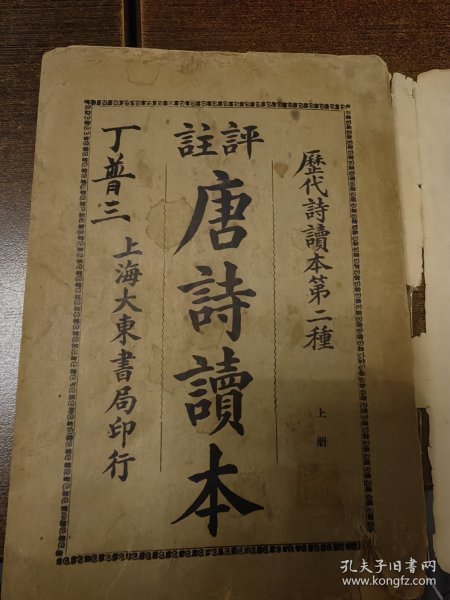 歷代詩讀本第二種
上册
評註
唐詩讀本
丁普三
上海大東書局印行
孔夫子旧书网
www.kongfz.com